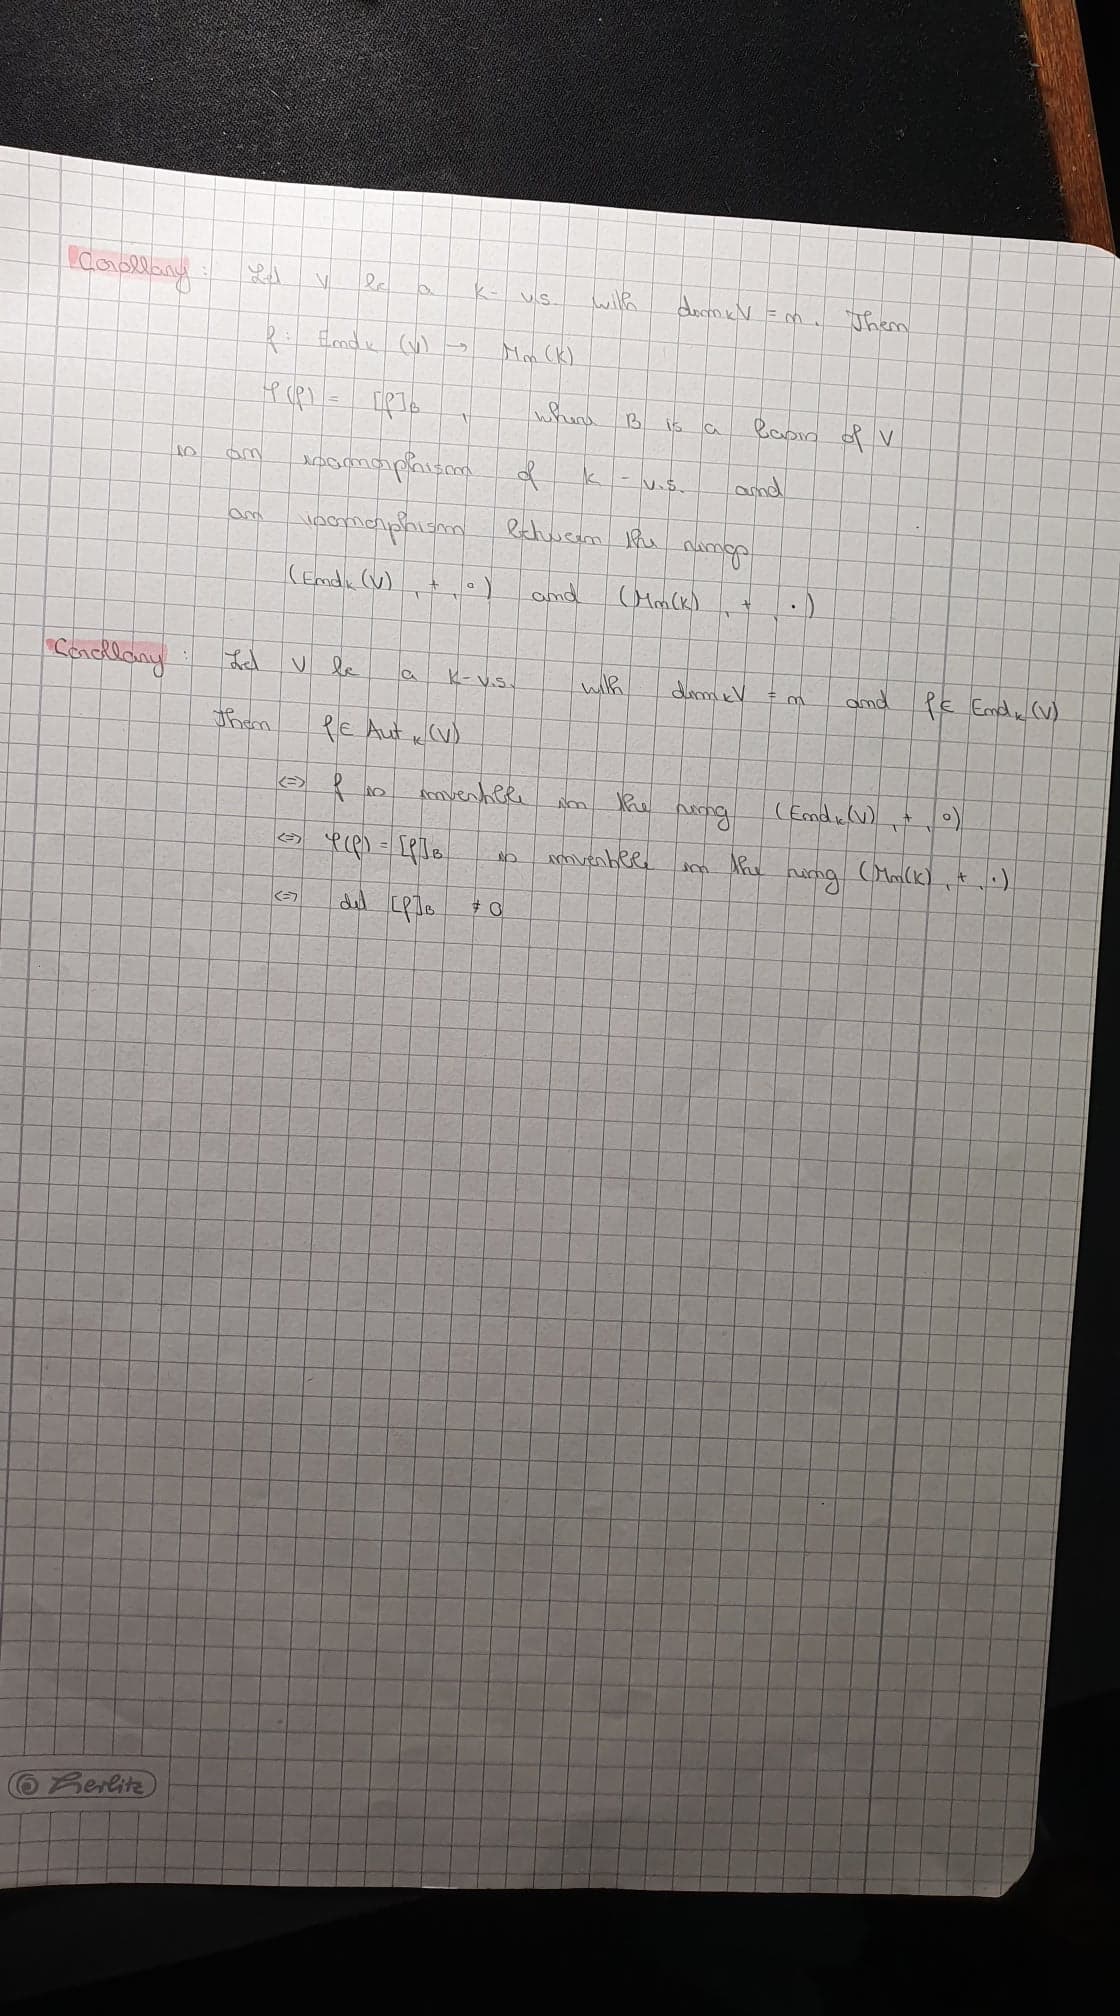 Corollary: Let V be a K-v.s. with dim_K V = n. Then
f: End_K (V) → M_n(K)
φ(f) = [f]_B , where B is a basis of V
is an isomorphism of K-v.s. and
an isomorphism between the rings
(End_K(V), +, ∘) and (M_n(K), +, ·)
Corollary: Let V be a K-v.s. with dim_K V = n and f ∈ End_K(V)
Then f ∈ Aut_K(V)
<=> f is invertible in the ring (End_K(V), +, ∘)
<=> φ(f) = [f]_B is invertible in the ring (M_n(K), +, ·)
<=> det [f]_B ≠ 0
© Herlitz